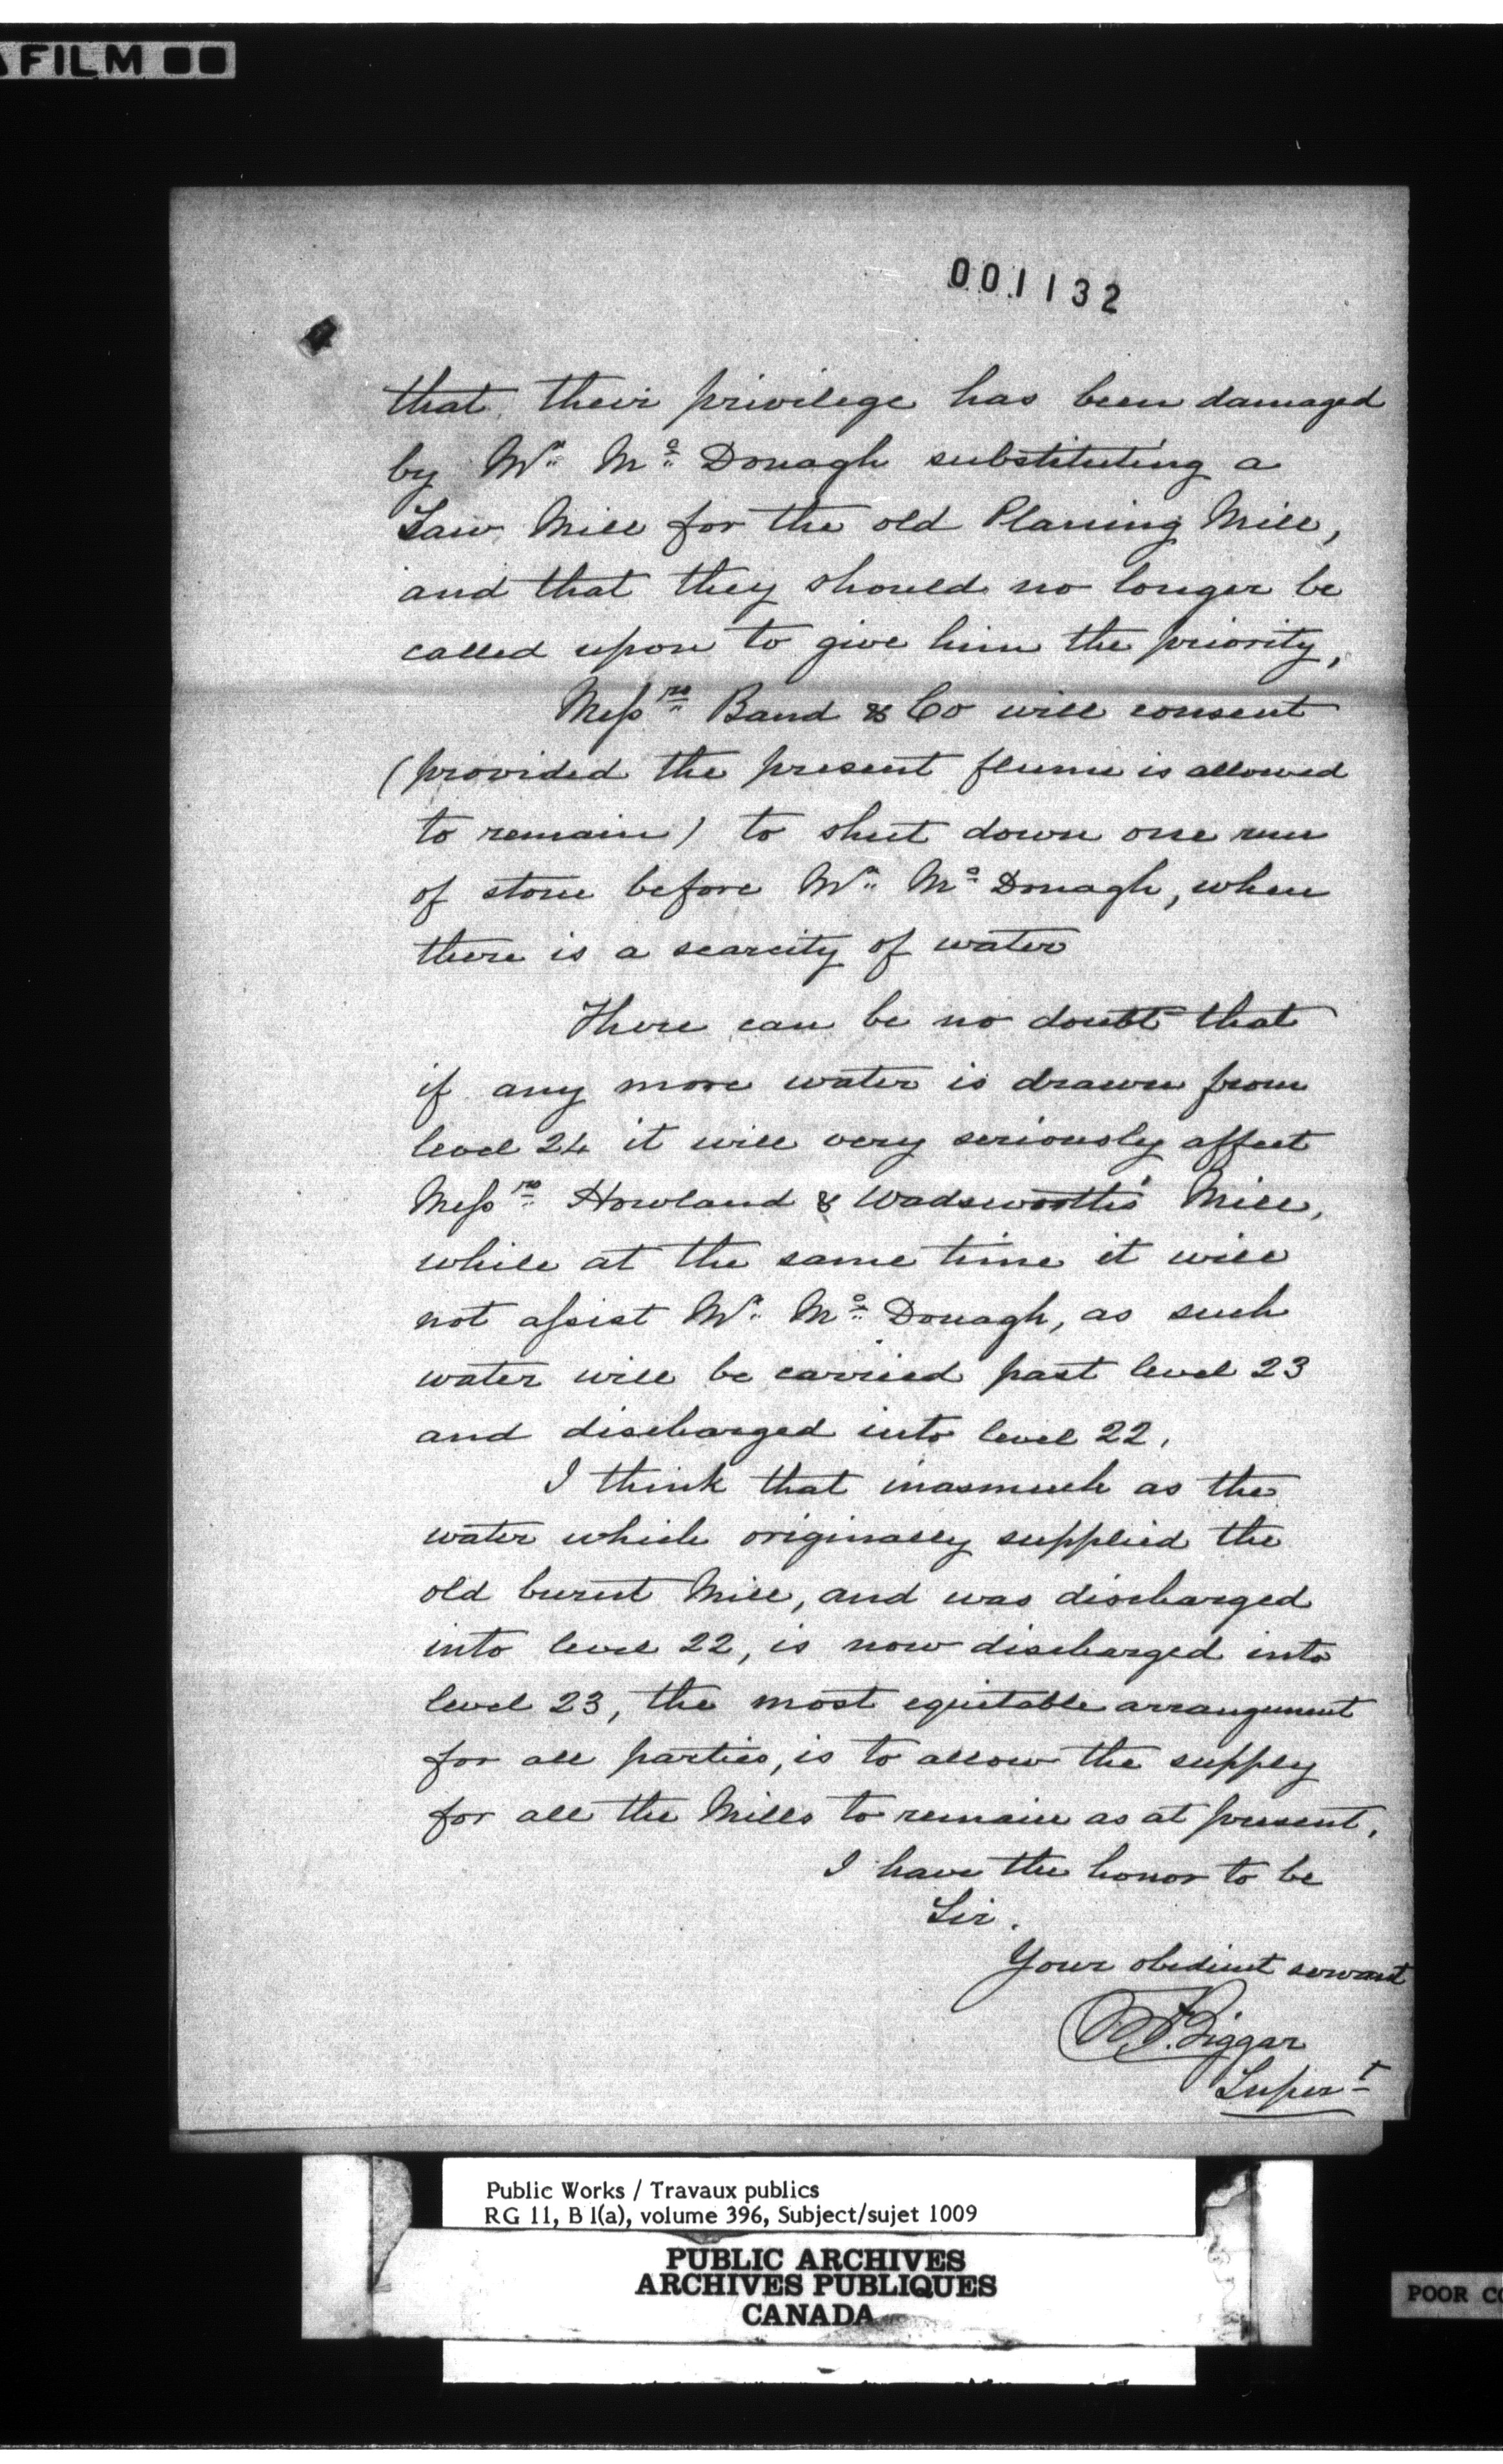 FILM
001132
that their privilege has been damaged
by Mr. Mc. Donagh substituting a
Saw Mill for the old Planing Mill,
and that they should no longer be
called upon to give him the priority,
Messrs. Band & Co will consent
(provided the present flume is allowed
to remain) to shut down one run
of stone before Mr. Mc. Donagh, when
there is a scarcity of water
There can be no doubt that
if any more water is drawn from
level 24 it will very seriously affect
Messrs. Howland & Wadsworth's Mill,
while at the same time it will
not assist Mr. Mc. Donagh, as such
water will be carried past level 23
and discharged into level 22.
I think that inasmuch as the
water which originally supplied the
old burnt Mill, and was discharged
into level 22, is now discharged into
level 23, the most equitable arrangement
for all parties, is to allow the supply
for all the Mills to remain as at present.
I have the honor to be
Sir.
Your obedient servant
Biggar
Supert
Public Works / Travaux publics
RG 11, B 1(a), volume 396, Subject/sujet 1009
PUBLIC ARCHIVES
ARCHIVES PUBLIQUES
CANADA
POOR